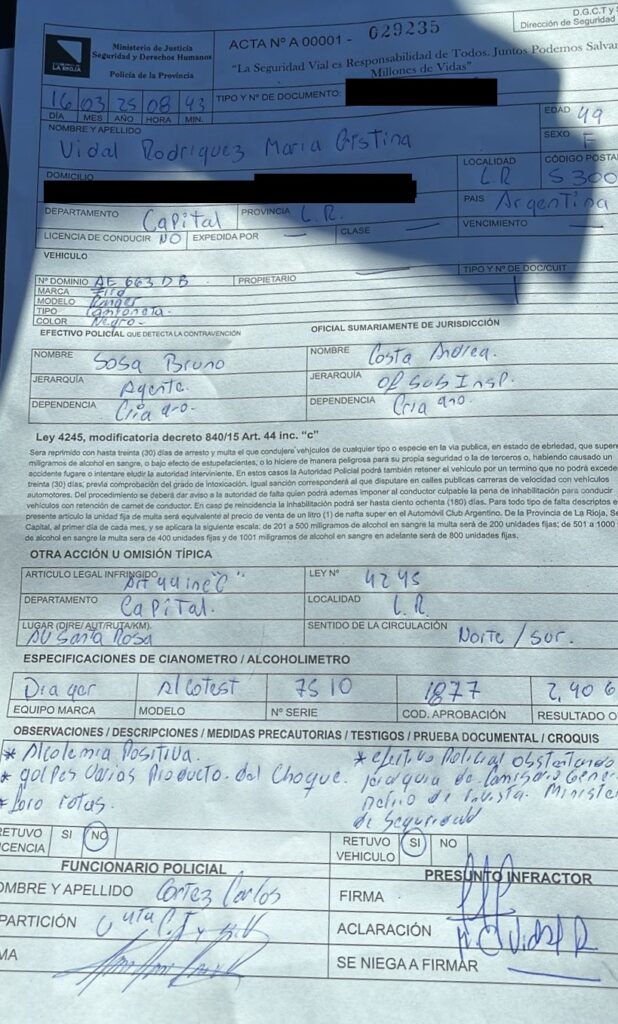 D.G.C.T y S
Dirección de Seguridad
GOBIERNO DE
LA RIOJA
Ministerio de Justicia
Seguridad y Derechos Humanos
Policía de la Provincia
ACTA Nº A 00001 - 029235
"La Seguridad Vial es Responsabilidad de Todos. Juntos Podemos Salvar
Millones de Vidas"
16 03 25 08 43
DÍA MES AÑO HORA MIN.
TIPO Y Nº DE DOCUMENTO:
EDAD 49
SEXO F
NOMBRE Y APELLIDO
Vidal Rodriguez Maria Cristina
DOMICILIO
LOCALIDAD
LR
CÓDIGO POSTA
5300
DEPARTAMENTO Capital PROVINCIA L.R. PAIS Argentina
LICENCIA DE CONDUCIR NO EXPEDIDA POR — CLASE — VENCIMIENTO —
VEHICULO
Nº DOMINIO AE 663 DB PROPIETARIO — TIPO Y Nº DE DOC/CUIT
MARCA Ford
MODELO Ranger
TIPO Camioneta.
COLOR Negro.-
EFECTIVO POLICIAL QUE DETECTA LA CONTRAVENCIÓN
OFICIAL SUMARIAMENTE DE JURISDICCIÓN
NOMBRE Sosa Bruno NOMBRE Costa Andrea.
JERARQUÍA Agente. JERARQUÍA Of Sub Insp.
DEPENDENCIA Cria 9no. DEPENDENCIA Cria 9no.
Ley 4245, modificatoria decreto 840/15 Art. 44 inc. "c"
Sera reprimido con hasta treinta (30) dias de arresto y multa el que condujere vehículos de cualquier tipo o especie en la via publica, en estado de ebriedad, que supere
miligramos de alcohol en sangre, o bajo efecto de estupefacientes, o lo hidiere de manera peligrosa para su propia seguridad o la de terceros o, habiendo causado un
accidente fugare o intentare eludir la autoridad interviniente. En estos casos la Autoridad Policial podrá también retener el vehículo por un termino que no podrá excede
treinta (30) dias, previa comprobación del grado de intoxicación. Igual sanción corresponderá al que disputare en calles publicas carreras de velocidad con vehículos
automotores. Del procedimiento se deberá dar aviso a la autoridad de falta quien podrá ademas imponer al conductor culpable la pena de inhabilitación para conducir
vehículos con retención de carnet de conductor. En caso de reincidencia la inhabilitación podrá ser hasta ciento ochenta (180) días. Para todo tipo de faltas descriptos e
presente artículo la unidad fija de multa será equivalente al precio de venta de un litro (1) de nafta super en el Automóvil Club Argentino. De la Provincia de La Rioja, Se
Capital, al primer dia de cada mes, y se aplicara la siguiente escala; de 201 a 500 miligramos de alcohol en sangre la multa será de 200 unidades fijas; de 501 a 1000
de alcohol en sangre la multa sera de 400 unidades fijas; y de 1001 miligramos de alcohol en sangre en adelante será de 800 unidades fijas.
OTRA ACCIÓN U OMISIÓN TÍPICA
ARTICULO LEGAL INFRINGIDO Art 44 inc "C" LEY Nº 4245
DEPARTAMENTO Capital. LOCALIDAD L.R.
LUGAR (DIRE/ AUT/RUTA/KM). AV Santa Rosa SENTIDO DE LA CIRCULACIÓN Norte / sur.
ESPECIFICACIONES DE CIANOMETRO / ALCOHOLIMETRO
Dragar Alcotest 7510 1877 2,40 6
EQUIPO MARCA MODELO Nº SERIE COD. APROBACIÓN RESULTADO O
OBSERVACIONES / DESCRIPCIONES / MEDIDAS PRECAUTORIAS / TESTIGOS / PRUEBA DOCUMENTAL / CROQUIS
* Alcolemia Positiva.
* golpes varios Producto del Choque.
* Faro rotos.
* efectivo Policial obstentando
jerarquia de Comisario Gener
Retiro de Minister
de Seguridad
RETUVO LICENCIA SI NO
RETUVO VEHICULO SI NO
FUNCIONARIO POLICIAL
PRESUNTO INFRACTOR
OMBRE Y APELLIDO Cortez Carlos
FIRMA
PARTICIÓN
ACLARACIÓN M. C Vidal R
MA
SE NIEGA A FIRMAR —